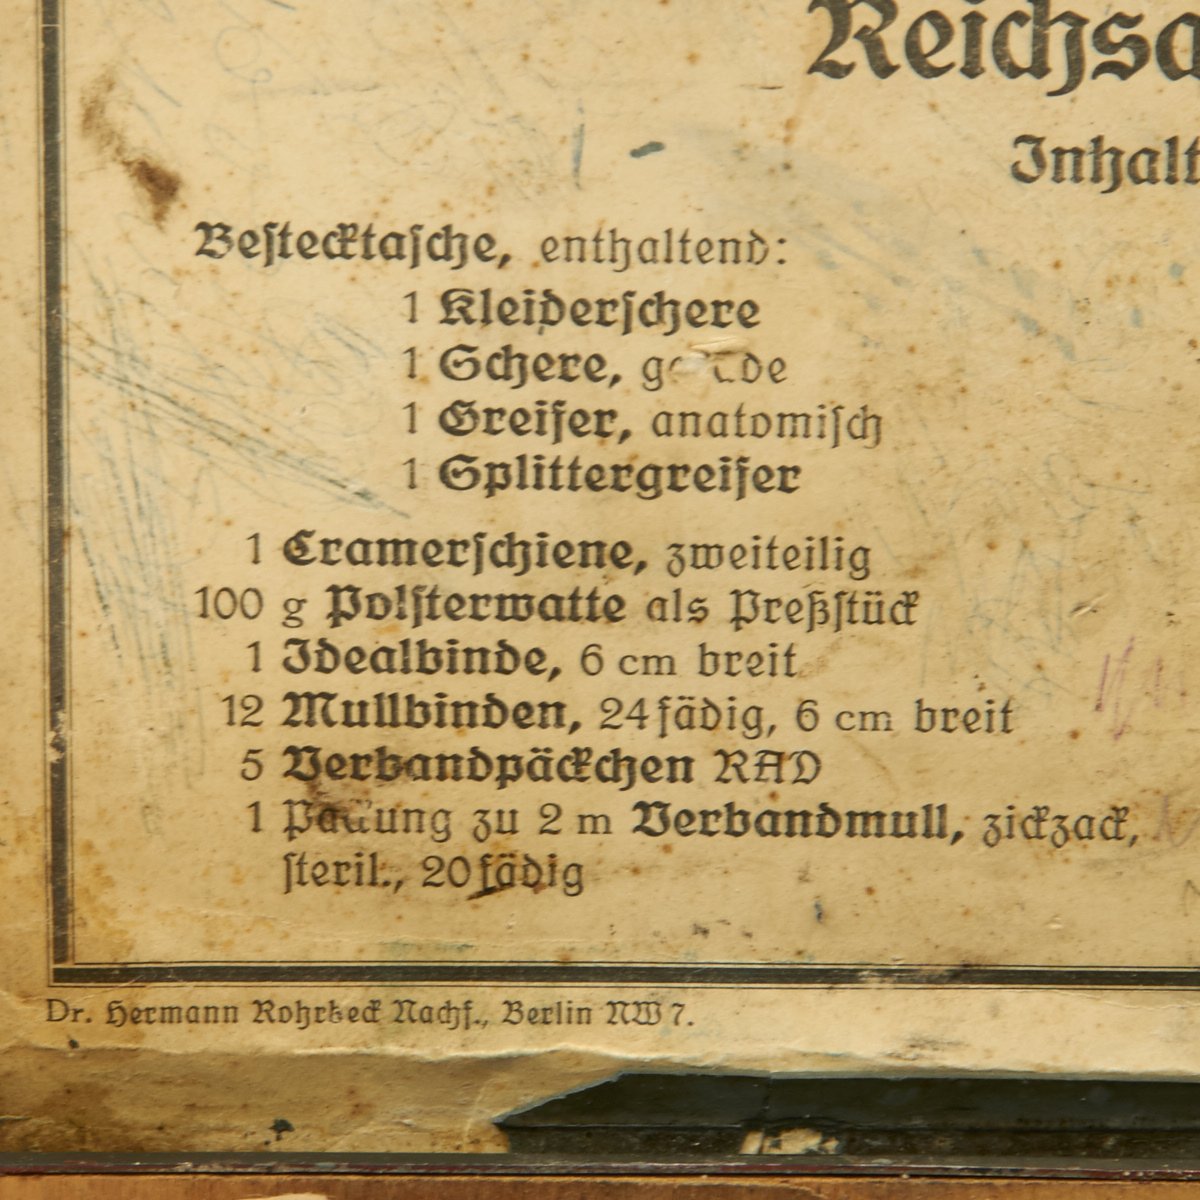 Reichsa
Inhalt
Bestecktasche, enthaltend:
1 Kleiderschere
1 Schere,
1 Greifer, anatomisch
1 Splittergreifer
1 Cramerschiene, zweiteilig
100 g Polsterwatte als Preßstück
1 Idealbinde, 6 cm breit
12 Mullbinden, 24fädig, 6 cm breit
5 Verbandpäckchen RAD
1 Packung zu 2 m Verbandmull, zickzack,
steril., 20fädig
Dr. Hermann Rohrbeck Nachf., Berlin NW 7.